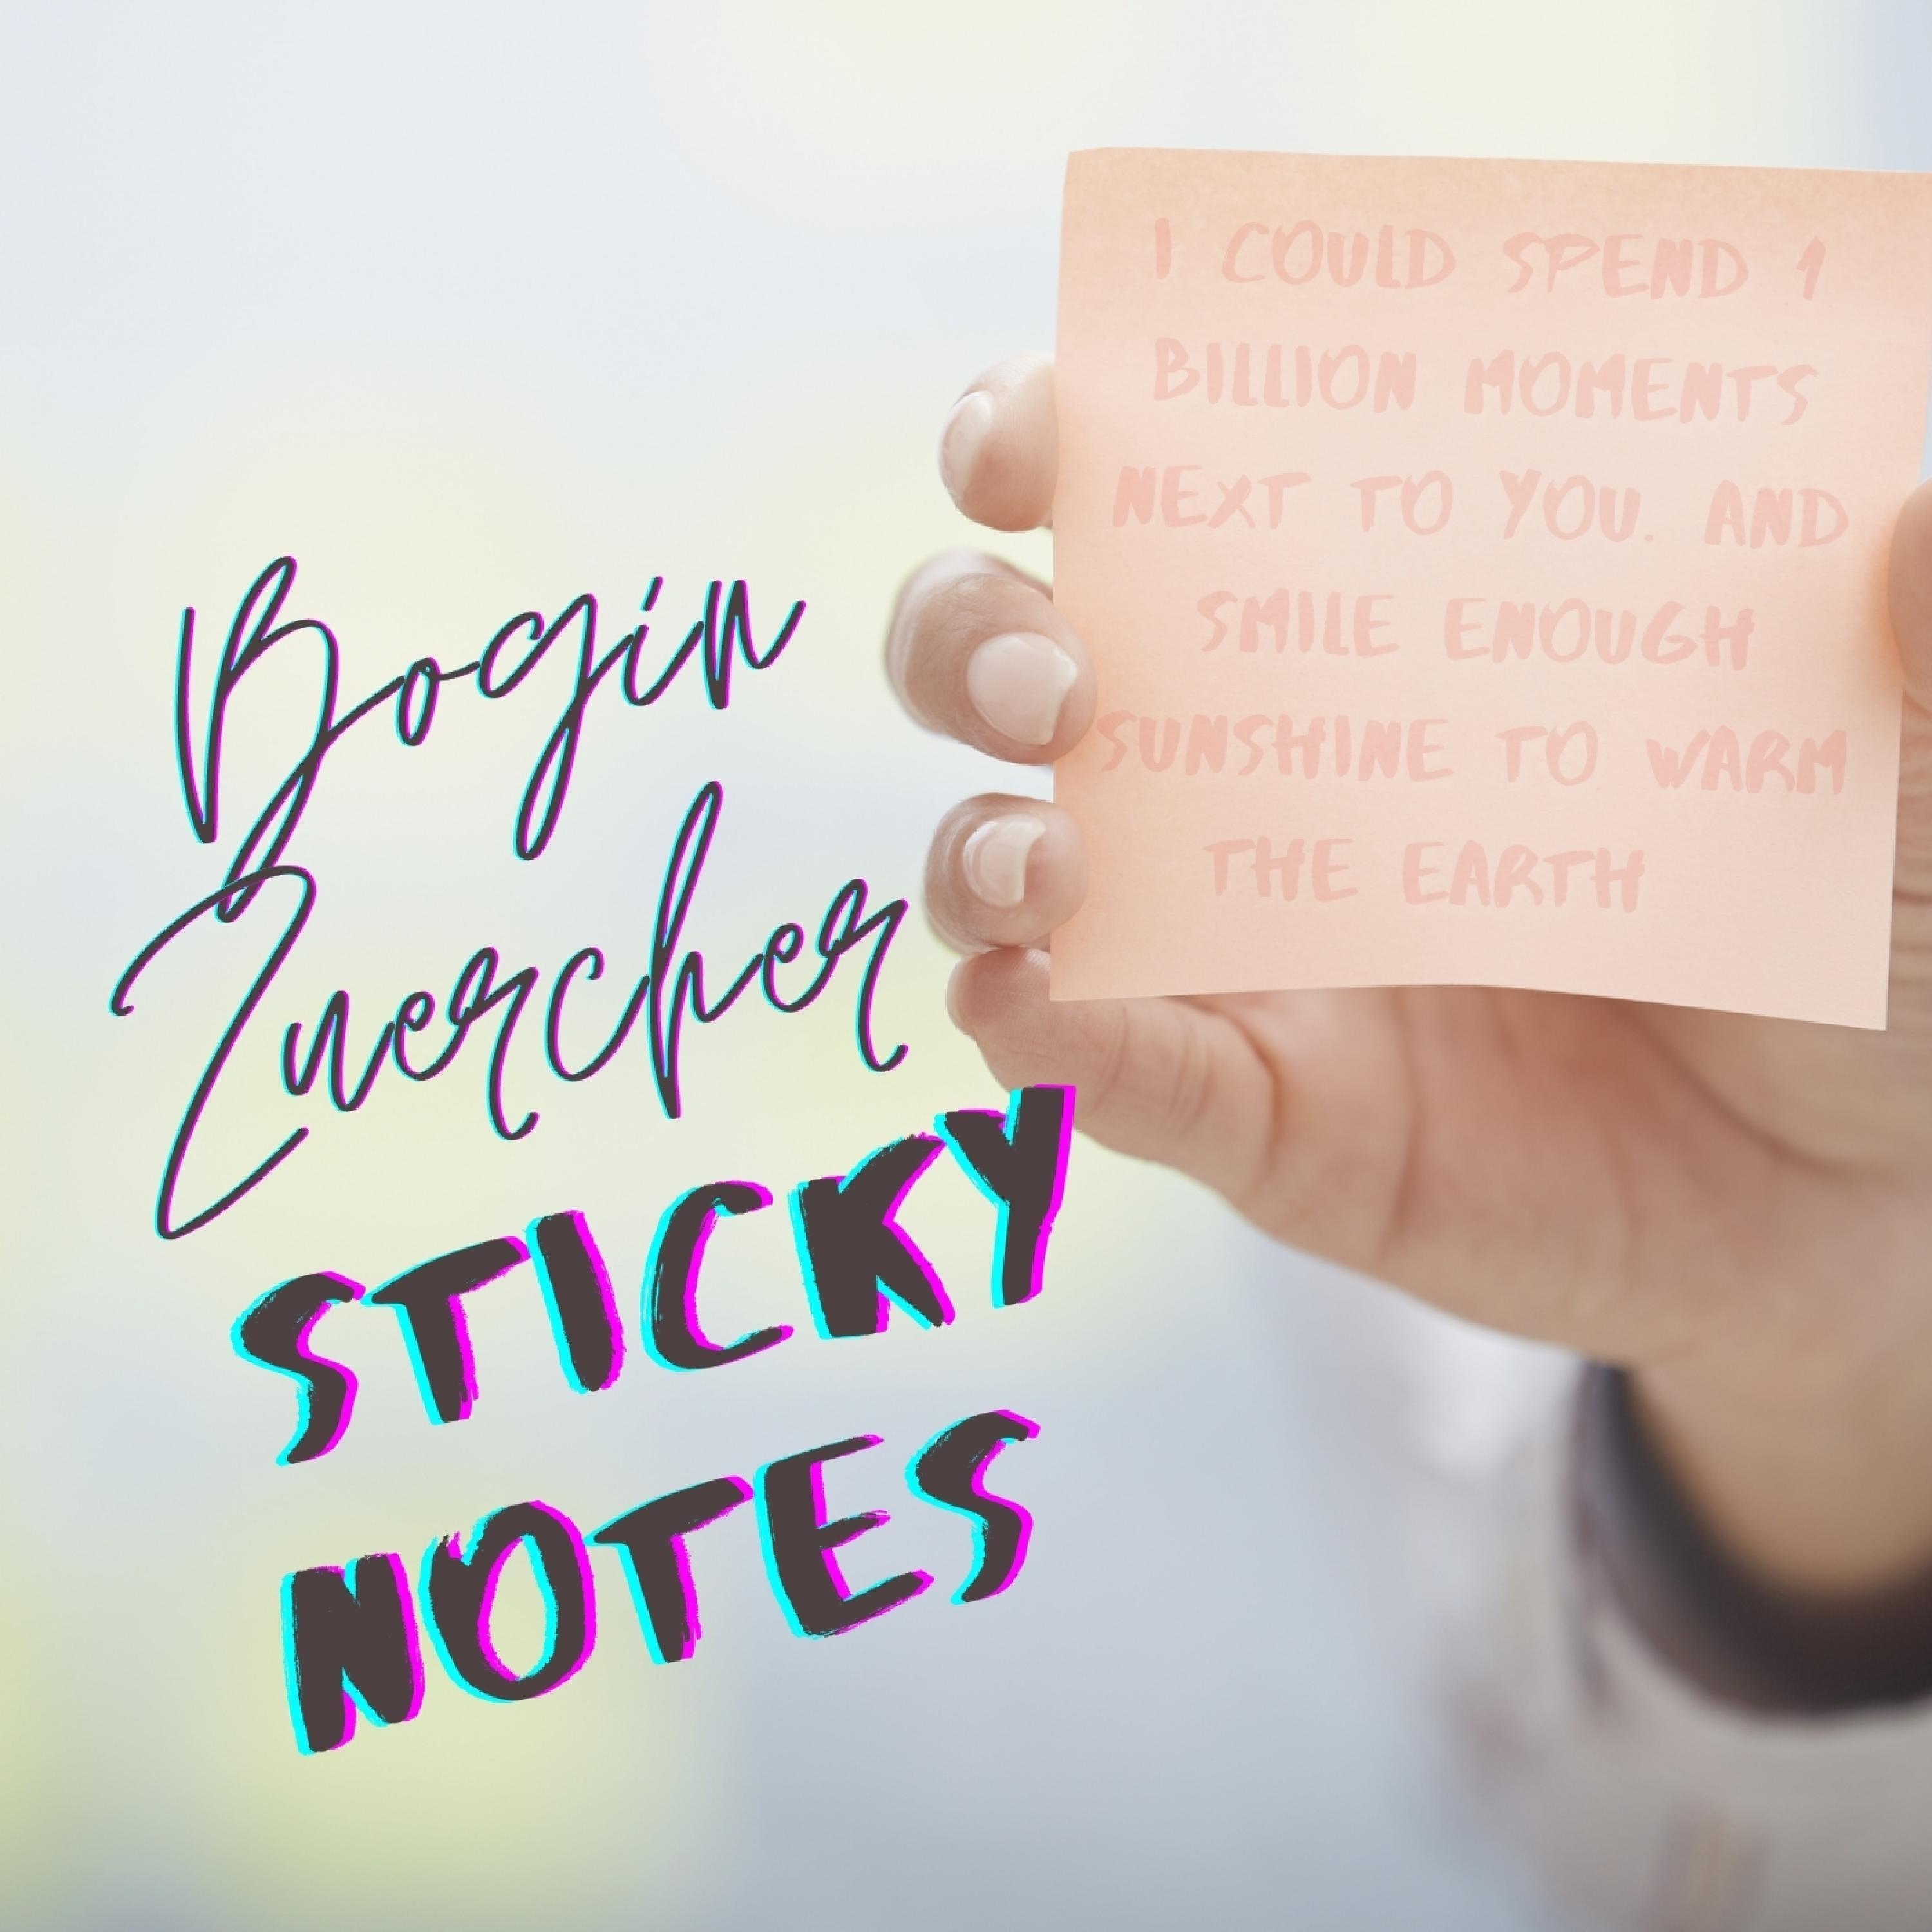 I COULD SPEND 1
BILLION MOMENTS
NEXT TO YOU. AND
SMILE ENOUGH
SUNSHINE TO WARM
THE EARTH
Bogin
Zuercher
STICKY
NOTES